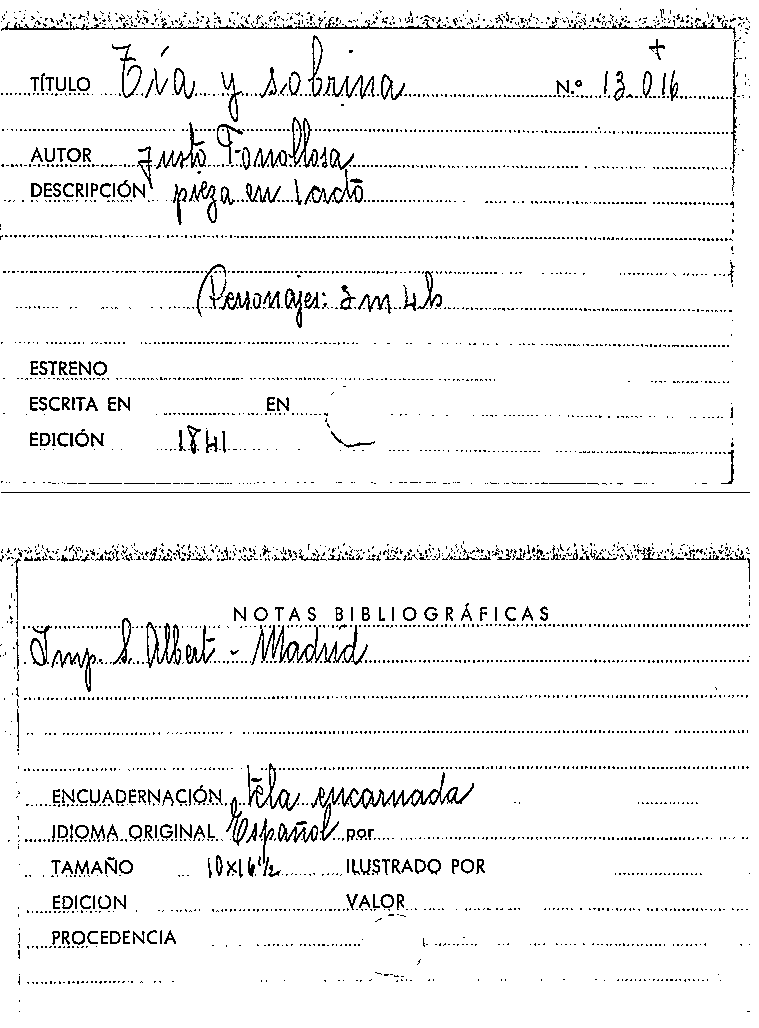 +
TÍTULO Tía y sobrina N.º 13.016
AUTOR Justo
DESCRIPCIÓN pieza en 1 acto
Personajes: 2 m 4 h
ESTRENO
ESCRITA EN EN
EDICIÓN 1841
NOTAS BIBLIOGRÁFICAS
Imp. S. Albert - Madrid
ENCUADERNACIÓN tela encarnada
IDIOMA ORIGINAL Español por
TAMAÑO 10x16 1/2 ILUSTRADO POR
EDICION VALOR
PROCEDENCIA